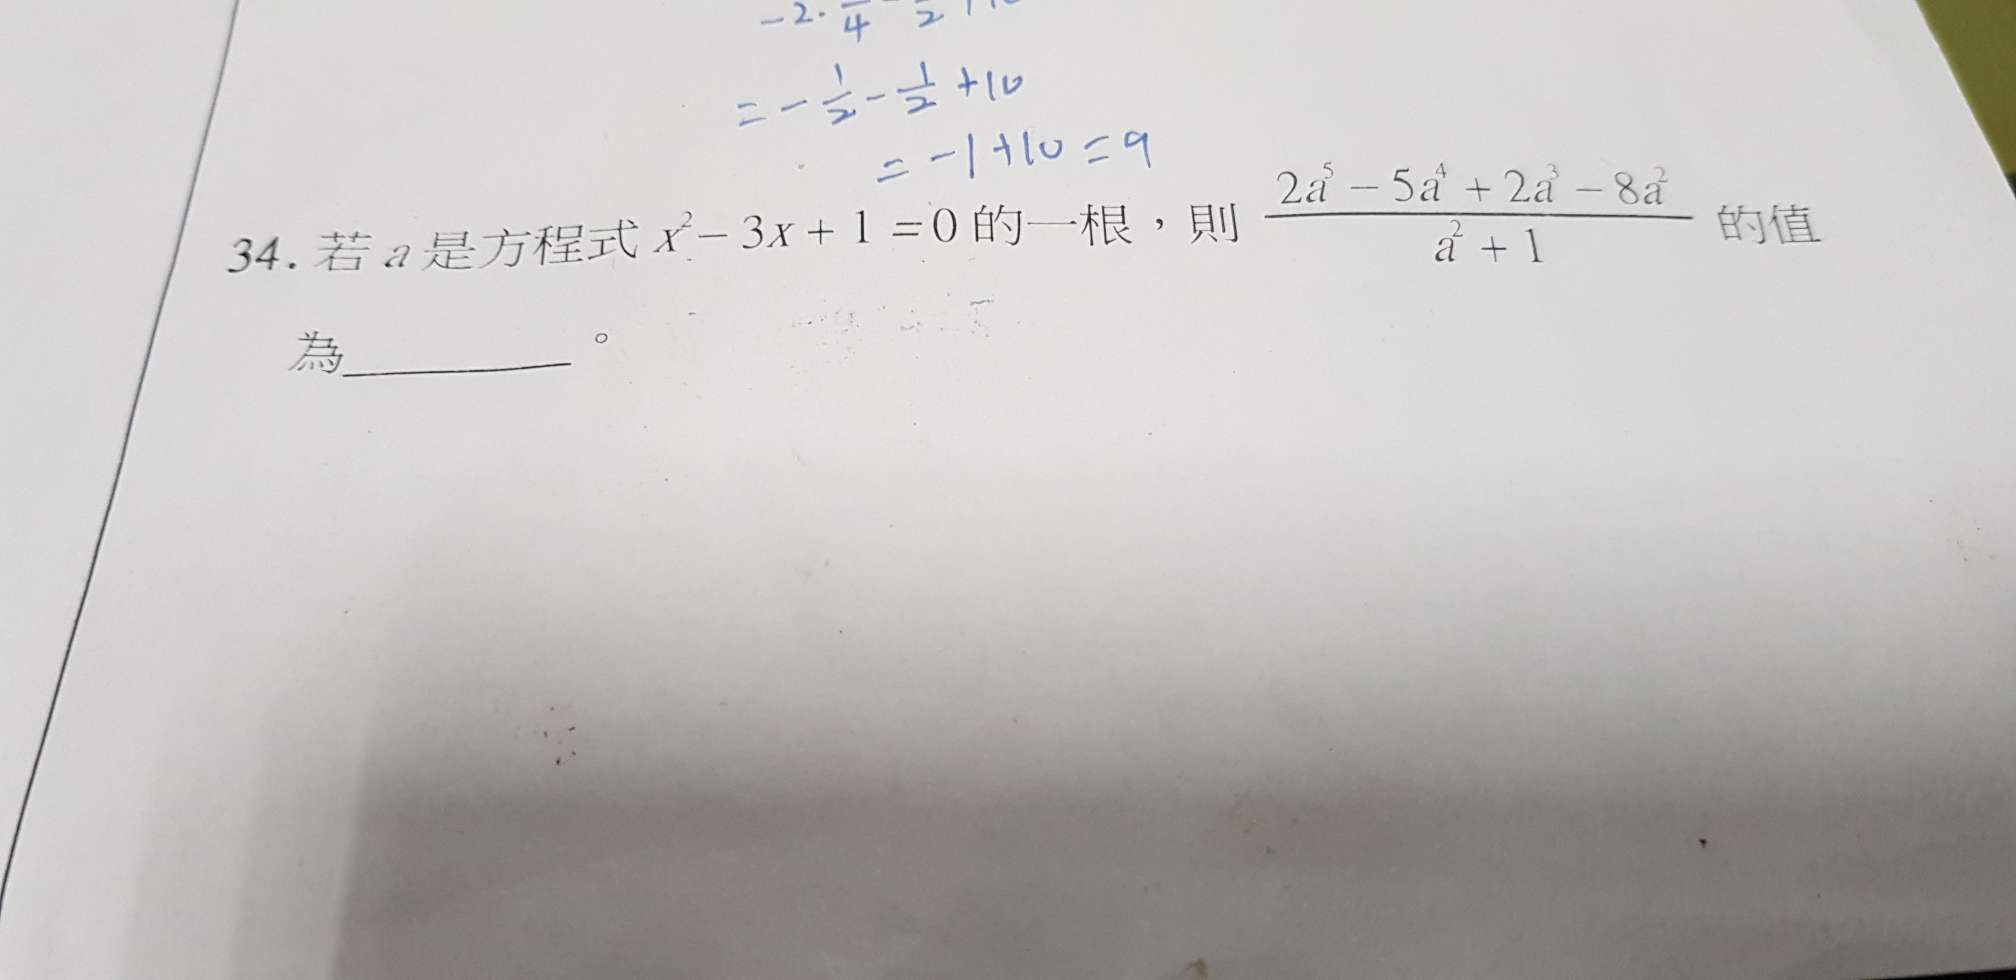 -2·
= -1/2 - 1/2 + 10
= -1 + 10 = 9
34. 若 a 是方程式 x² - 3x + 1 = 0 的一根,則 (2a⁵ - 5a⁴ + 2a³ - 8a²)/(a² + 1) 的值
為________。